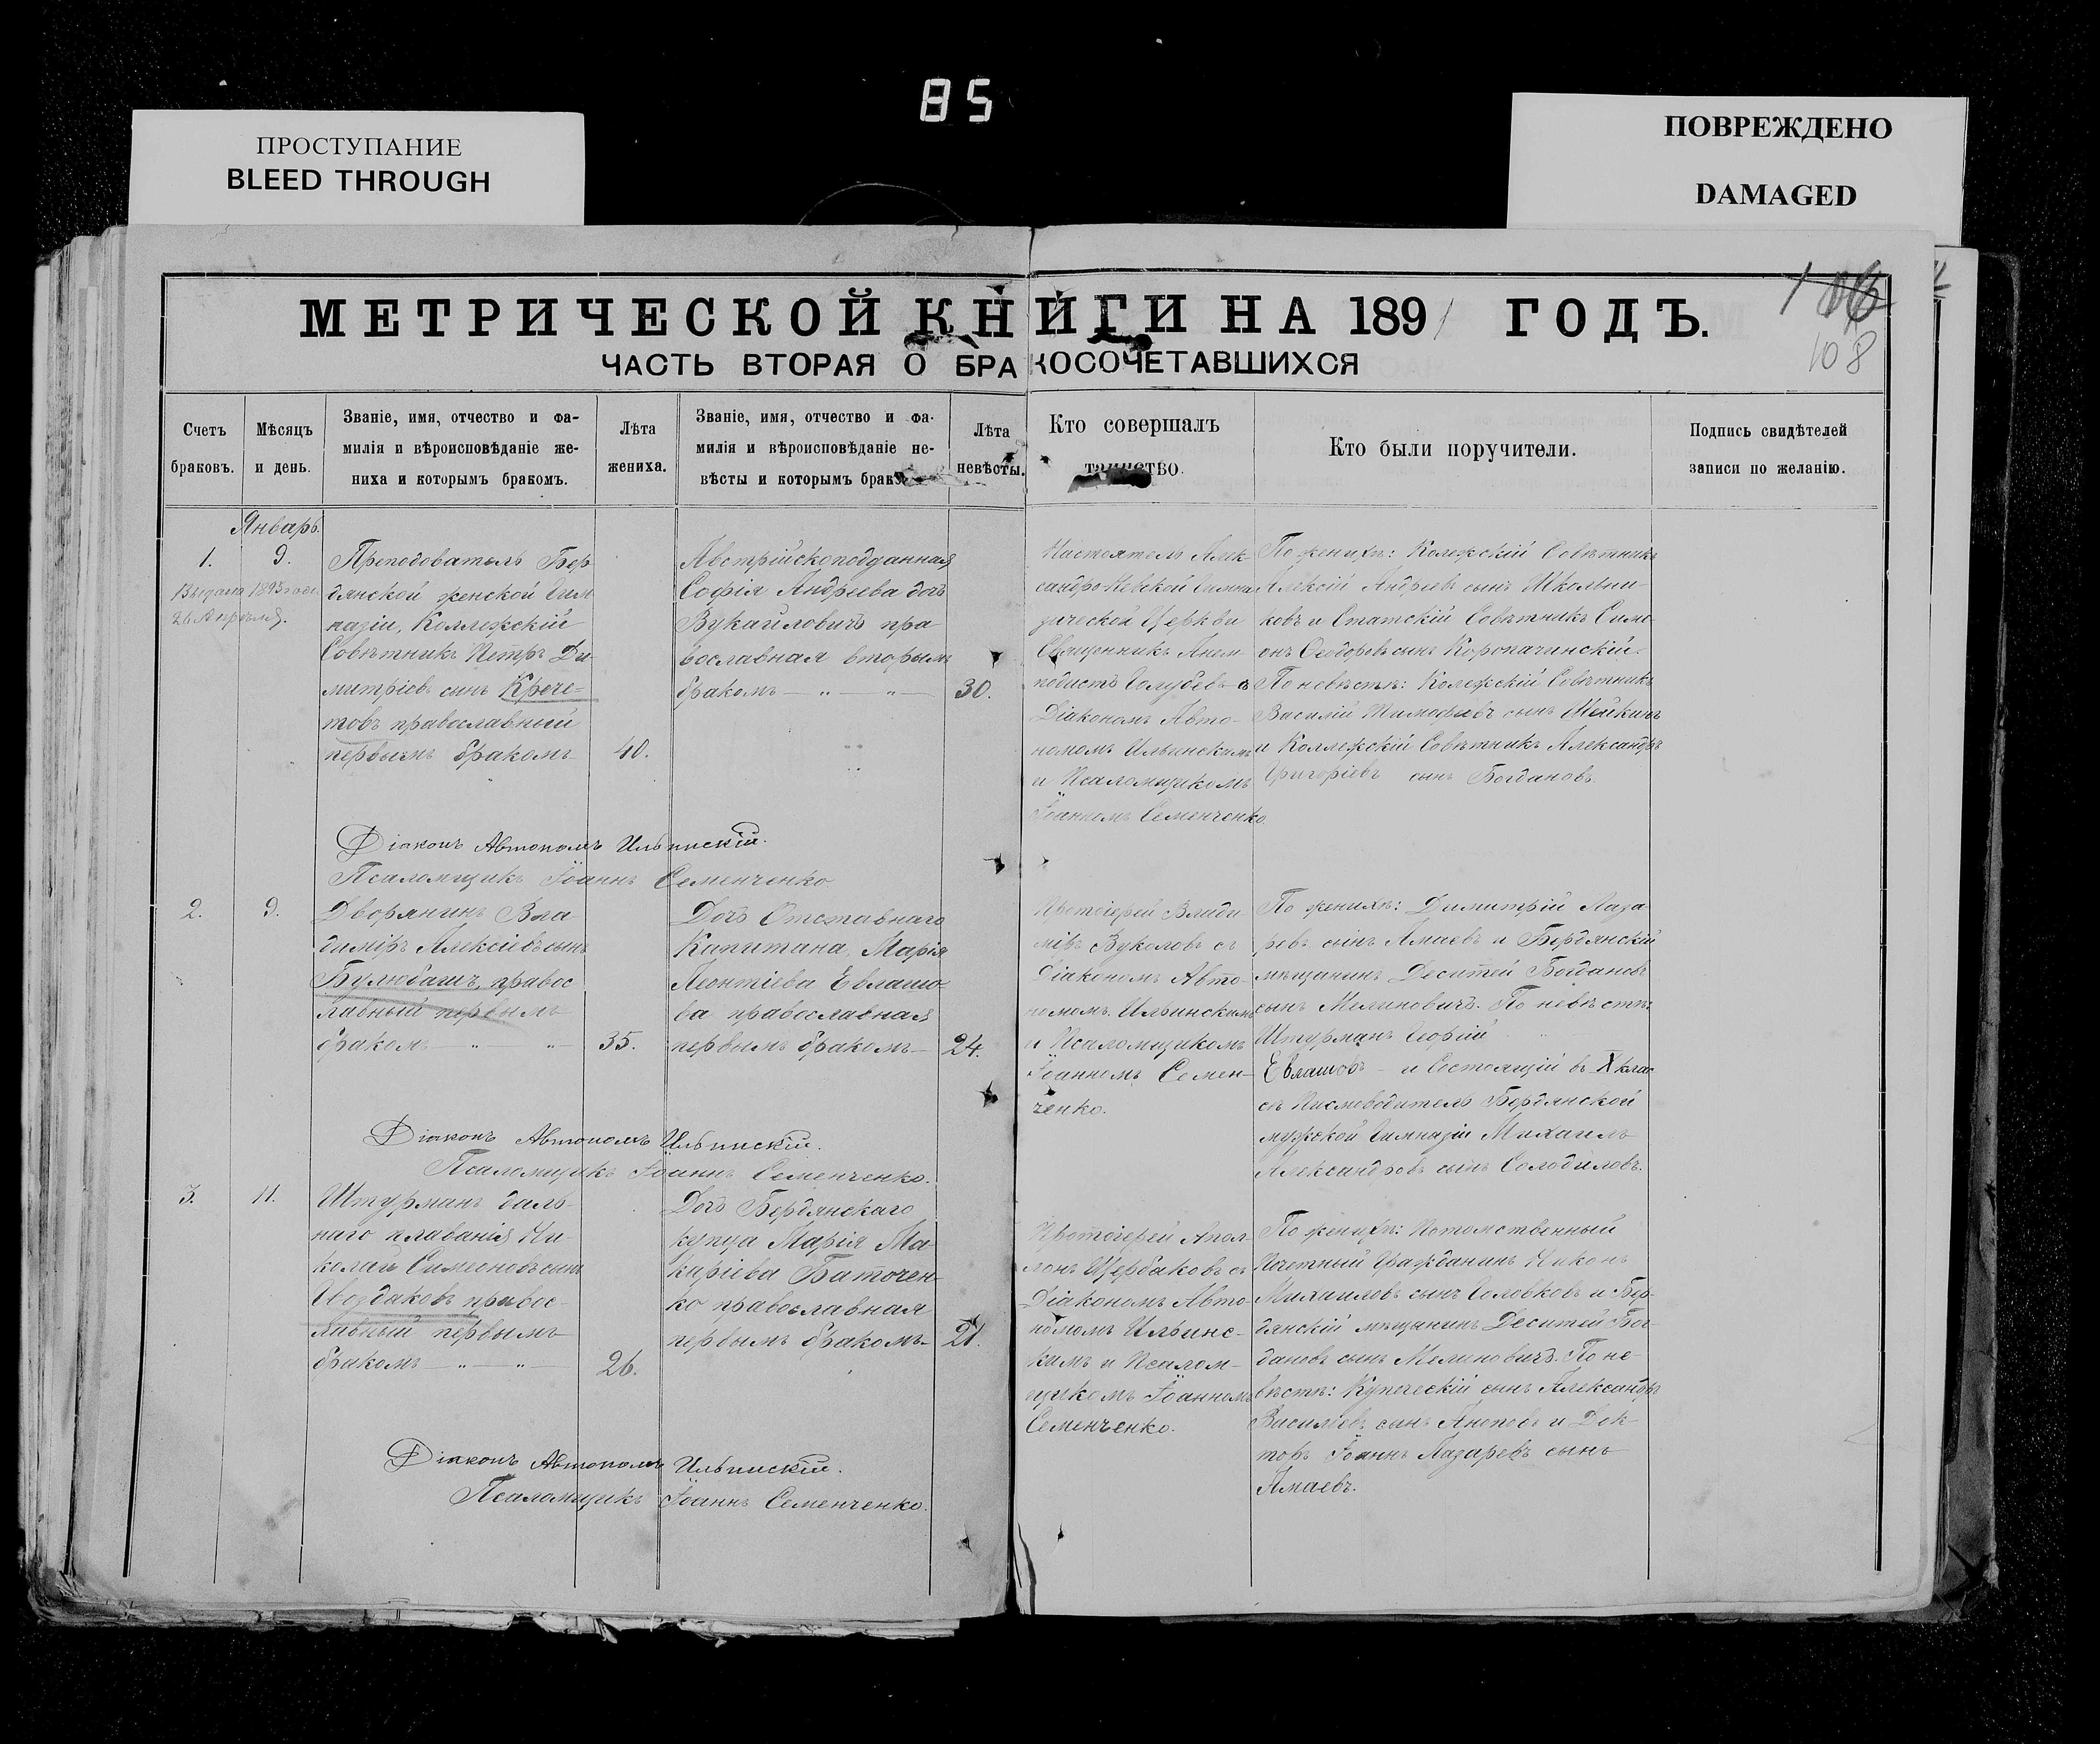 85
ПРОСТУПАНИЕ
BLEED THROUGH
ПОВРЕЖДЕНО
DAMAGED
МЕТРИЧЕСКОЙ КНИГИ НА 1891 ГОДЪ.
108
ЧАСТЬ ВТОРАЯ О БРАКОСОЧЕТАВШИХСЯ
Счетъ
браковъ.
Мѣсяцъ
и день.
Званіе, имя, отчество и фа-
милія и вѣроисповѣданіе же-
ниха и которымъ бракомъ.
Лѣта
жениха.
Званіе, имя, отчество и фа-
милія и вѣроисповѣданіе не-
вѣсты и которымъ брак
Лѣта
невѣсты.
Кто совершалъ
таинство.
Кто были поручители.
Подпись свидѣтелей
записи по желанію.
Январь.
1.
9.
Выдана 1895 года
26 Апрѣля.
Преподователь Бер
дянской женской Гим
назіи, Коллежскій
Совѣтникъ Петръ Ди-
митріевъ сынъ Крече=
товъ православный
первымъ бракомъ
40.
Австрійскоподданная
Софія Андреева дочь
Вукайловичъ пра
вославная вторымъ
бракомъ — „ — „ —
30.
Настоятель Алек-
сандро-Невской Гимна
зической Церкви
Священникъ Анем
подистъ Голубевъ съ
Діакономъ Авто-
номомъ Ильинскимъ
и Псаломщикомъ
Іоанномъ Семенченко
По женихѣ: Колежскій Совѣтникъ
Алексій Андреевъ сынъ Школьни-
ковъ и Статскій Совѣтникъ Симе
онъ Ѳеодоровъ сынъ Коропачинскій.
По невѣстѣ: Колежскій Совѣтникъ
Василій Тимофеевъ сынъ Шейкинъ
и Коллежскій Совѣтникъ Александръ
Григоріевъ сынъ Богдановъ.
Діаконъ Автономъ Ильинскій.
Псаломщикъ Іоаннъ Семенченко
2.
9.
Дворянинъ Вла-
диміръ Алексіевъ сынъ
Булюбашъ, правос
лавный первымъ
бракомъ — „ — „ —
35.
Дочь Отставнаго
Капитана, Марія
Леонтіева Евлашо=
ва православная
первымъ бракомъ—
24.
Протоіерей Влади
міръ Вуколовъ съ
Діакономъ Авто-
номомъ Ильинскимъ
и Псаломщикомъ
Іоанномъ Семен-
ченко.
По женихѣ: Димитрій Лаза-
ревъ сынъ Амаевъ и Бердянскій
мѣщанинъ Деситей Богдановъ
сынъ Мелиновичъ. По невѣстѣ:
Штурманъ Георгій
Евлашовъ — и Состоящій въ X клас
сѣ Писмоводитель Бердянской
мужской Гимназіи Михаилъ
Александровъ сынъ Солодиловъ.
Діаконъ Автономъ Ильинскій.
Псаломщикъ Іоаннъ Семенченко.
3.
11.
Штурманъ даль-
наго плаванія Ни-
колай Симеоновъ сынъ
Гвоздаковъ правос-
лавный первымъ
бракомъ — „ — „ —
26.
Дочь Бердянскаго
купца Марія Ма-
каріева Баточен-
ко православная
первымъ бракомъ—
21.
Протоіерей Апол-
лонъ Щербаковъ съ
Діакономъ Авто-
номомъ Ильинс-
кимъ и Псалом-
щикомъ Іоанномъ
Семенченко.
По женихѣ: Потомственный
Почетный Гражданинъ Никонъ
Михаиловъ сынъ Головковъ и Бер-
дянскій мѣщанинъ Деситей Бог-
дановъ сынъ Мелиновичъ. По не-
вѣстѣ: Купеческій сынъ Александръ
Василіевъ сынъ Аноповъ и Док-
торъ Іоаннъ Лазаревъ сынъ
Амаевъ.
Діаконъ Автономъ Ильинскій.
Псаломщикъ Іоаннъ Семенченко.